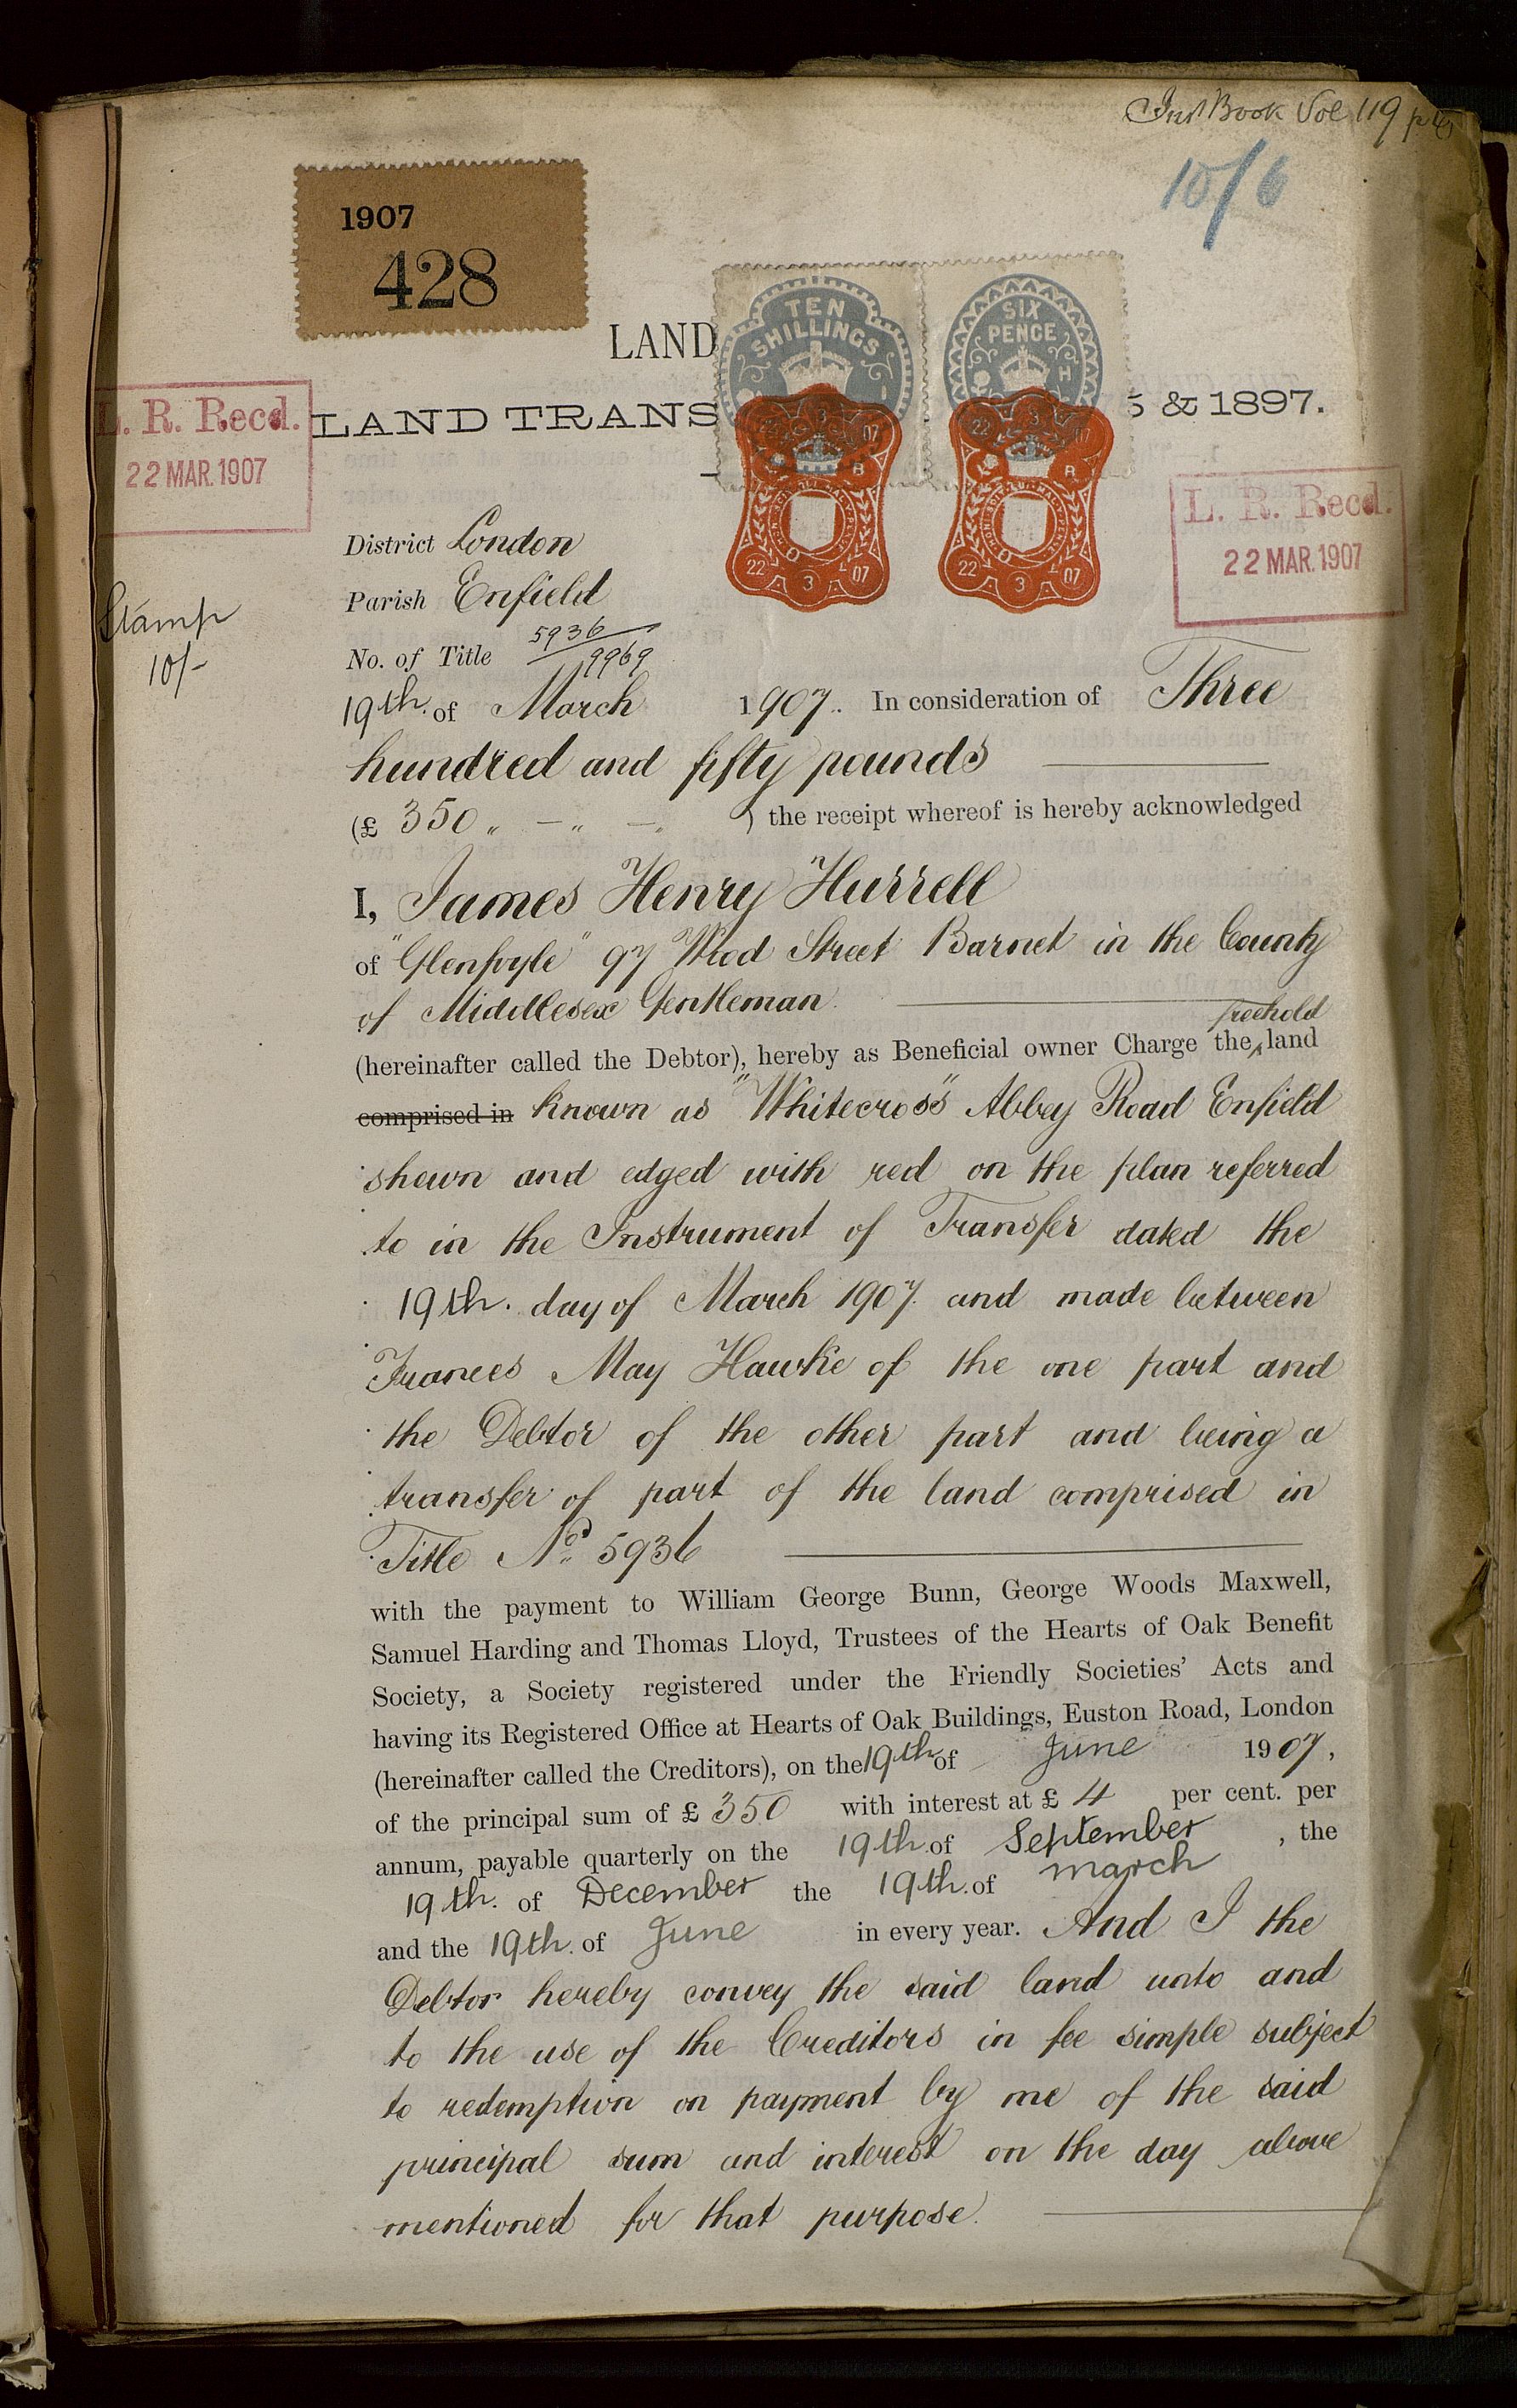 Inst Book Vol 119 p
10/6
1907
428
TEN
SHILLINGS
SIX
PENCE
LAND
LAND TRANS
5 & 1897.
L. R. Recd.
22 MAR. 1907
L. R. Recd.
22 MAR. 1907
22 3 07
22 3 07
Stamp
10/-
District London
Parish Enfield
No. of Title 5936
9969
19th. of March 1907. In consideration of Three
hundred and fifty pounds
(£ 350 " - " - " ) the receipt whereof is hereby acknowledged
I, James Henry Hurrell
of "Glenfoyle" 97 Wood Street Barnet in the County
of Middlesex Gentleman
freehold
(hereinafter called the Debtor), hereby as Beneficial owner Charge the land
comprised in known as "Whitecross" Abbey Road Enfield
shewn and edged with red on the plan referred
to in the Instrument of Transfer dated the
19th. day of March 1907. and made between
Frances May Hawke of the one part and
the Debtor of the other part and being a
transfer of part of the land comprised in
Title No. 5936
with the payment to William George Bunn, George Woods Maxwell,
Samuel Harding and Thomas Lloyd, Trustees of the Hearts of Oak Benefit
Society, a Society registered under the Friendly Societies' Acts and
having its Registered Office at Hearts of Oak Buildings, Euston Road, London
(hereinafter called the Creditors), on the 19th of June 1907,
of the principal sum of £ 350 with interest at £ 4 per cent. per
annum, payable quarterly on the 19th. of September , the
19th. of December the 19th. of march
and the 19th. of June in every year. And I the
Debtor hereby convey the said land unto and
to the use of the Creditors in fee simple subject
to redemption on payment by me of the said
principal sum and interest on the day above
mentioned for that purpose.